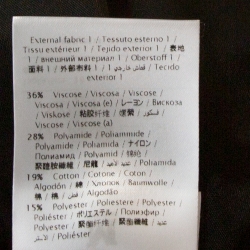 External fabric 1 / Tessuto esterno 1 /
Tissu extérieur 1 / Tejido exterior 1 / 表地
1 / внешний материал 1 / Oberstoff 1 /
面料 1 / 外部布料 1 / قماش خارجي 1 / Tecido
exterior 1
36% Viscose / Viscosa / Viscose /
Viscosa / Viscosa (e) / レーヨン / Вискоза
/ Viskose / 粘胶纤维 / 嫘縈 / فسكوز /
Viscose / Viscosa (a)
28% Polyamide / Poliammide /
Polyamide / Poliamida / ナイロン /
Полиамид / Polyamid / 锦纶
聚醯胺纖維 / 尼龍 / / Poliamida
19% Cotton / Cotone / Coton /
Algodón / 綿 / Хлопок / Baumwolle /
棉 / 棉 / قطن / Algodão
15% Polyester / Poliestere / Polyester /
Poliéster / ポリエステル / Полиэфир /
Polyester / 聚酯纤维 / 聚酯纖維 /
/ Poliéster